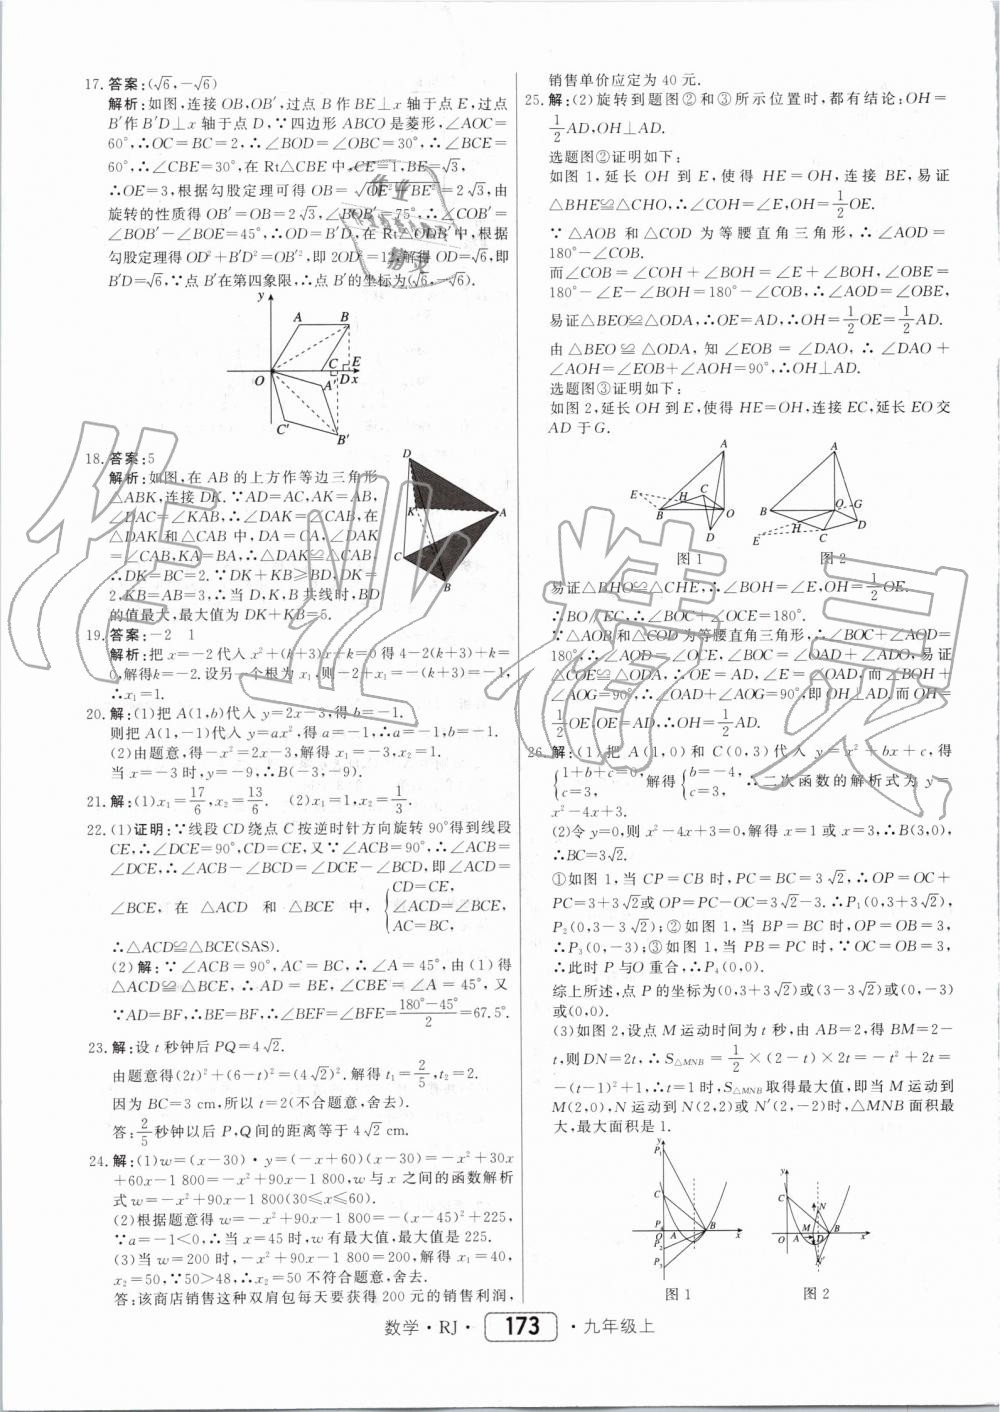 17. 答案:(√6,-√6)
解析:如图,连接 OB,OB′,过点 B 作 BE⊥x 轴于点 E,过点
B′作 B′D⊥x 轴于点 D,∵四边形 ABCO 是菱形,∠AOC=
60°,∴OC=BC=2,∴∠BOD=∠OBC=30°,∠BCE=
60°,∴∠CBE=30°,在 Rt△CBE 中,CE=1,BE=√3,
∴OE=3,根据勾股定理可得 OB=√(OE²+BE²)=2√3,由
旋转的性质得 OB′=OB=2√3,∠BOB′=75°,∴∠COB′=
∠BOB′-∠BOE=45°,∴OD=B′D,在 Rt△ODB′中,根据
勾股定理得 OD²+B′D²=OB′²,即 2OD²=12,解得 OD=√6,即
B′D=√6,∵点 B′在第四象限,∴点 B′的坐标为(√6,-√6).
y
A B
C E
O D x
A′
C′
B′
18. 答案:5
解析:如图,在 AB 的上方作等边三角形
△ABK,连接 DK.∵AD=AC,AK=AB,
∠DAC=∠KAB,∴∠DAK=∠CAB,在
△DAK 和△CAB 中,DA=CA,∠DAK
=∠CAB,KA=BA,∴△DAK≌△CAB,
∴DK=BC=2.∵DK+KB≥BD,DK=
2,KB=AB=3,∴当 D,K,B 共线时,BD
的值最大,最大值为 DK+KB=5.
D
K
A
C
B
19. 答案:-2 1
解析:把 x=-2 代入 x²+(k+3)x+k=0 得 4-2(k+3)+k=
0,解得 k=-2.设另一个根为 x₁,则-2+x₁=-(k+3)=-1,
∴x₁=1.
20. 解:(1)把 A(1,b)代入 y=2x-3,得 b=-1.
则把 A(1,-1)代入 y=ax²,得 a=-1,∴a=-1,b=-1.
(2)由题意,得-x²=2x-3,解得 x₁=-3,x₂=1.
当 x=-3 时,y=-9,∴B(-3,-9).
21. 解:(1)x₁=17/6,x₂=13/6. (2)x₁=1,x₂=1/3.
22. (1)证明:∵线段 CD 绕点 C 按逆时针方向旋转 90°得到线段
CE,∴∠DCE=90°,CD=CE,又∵∠ACB=90°,∴∠ACB=
∠DCE,∴∠ACB-∠BCD=∠DCE-∠BCD,即∠ACD=
∠BCE,在 △ACD 和 △BCE 中,{CD=CE, ∠ACD=∠BCE, AC=BC,
∴△ACD≌△BCE(SAS).
(2)解:∵∠ACB=90°,AC=BC,∴∠A=45°,由(1)得
△ACD≌△BCE,∴AD=BE,∠CBE=∠A=45°,又
∵AD=BF,∴BE=BF,∴∠BEF=∠BFE=(180°-45°)/2=67.5°.
23. 解:设 t 秒钟后 PQ=4√2.
由题意得(2t)²+(6-t)²=(4√2)².解得 t₁=2/5,t₂=2.
因为 BC=3 cm,所以 t=2(不合题意,舍去).
答:2/5秒钟以后 P,Q 间的距离等于 4√2 cm.
24. 解:(1)w=(x-30)·y=(-x+60)(x-30)=-x²+30x
+60x-1 800=-x²+90x-1 800,w 与 x 之间的函数解析
式 w=-x²+90x-1 800(30≤x≤60).
(2)根据题意得 w=-x²+90x-1 800=-(x-45)²+225,
∵a=-1<0,∴当 x=45 时,w 有最大值,最大值是 225.
(3)当 w=200 时,-x²+90x-1 800=200,解得 x₁=40,
x₂=50,∵50>48,∴x₂=50 不符合题意,舍去.
答:该商店销售这种双肩包每天要获得 200 元的销售利润,
销售单价应定为 40 元.
25. 解:(2)旋转到题图②和③所示位置时,都有结论:OH=
1/2AD,OH⊥AD.
选题图②证明如下:
如图 1,延长 OH 到 E,使得 HE=OH,连接 BE,易证
△BHE≌△CHO,∴∠COH=∠E,OH=1/2OE.
∵△AOB 和△COD 为等腰直角三角形,∴∠AOD=
180°-∠COB.
而∠COB=∠COH+∠BOH=∠E+∠BOH,∠OBE=
180°-∠E-∠BOH=180°-∠COB,∴∠AOD=∠OBE,
易证△BEO≌△ODA,∴OE=AD,∴OH=1/2OE=1/2AD.
由△BEO≌△ODA,知∠EOB=∠DAO,∴∠DAO+
∠AOH=∠EOB+∠AOH=90°,∴OH⊥AD.
选题图③证明如下:
如图 2,延长 OH 到 E,使得 HE=OH,连接 EC,延长 EO 交
AD 于 G.
A
E H C
B O
D
图 1
A
B O G
H D
E C
图 2
易证△BHO≌△CHE,∴∠BOH=∠E,OH=1/2OE.
∴BO∥EC,∴∠BOC+∠OCE=180°.
∵△AOB 和△COD 为等腰直角三角形,∴∠BOC+∠AOD=
180°,∴∠AOD=∠OCE,∠BOC=∠OAD+∠ADO,易证
△COE≌△ODA,∴OE=AD,∠E=∠OAD,而∠BOH+
∠AOG=90°,∴∠OAD+∠AOG=90°,即 OH⊥AD.而 OH=
1/2OE,OE=AD,∴OH=1/2AD.
26. 解:(1)把 A(1,0)和 C(0,3)代入 y=x²+bx+c,得
{1+b+c=0, c=3, 解得{b=-4, c=3, ∴二次函数的解析式为 y=
x²-4x+3.
(2)令 y=0,则 x²-4x+3=0,解得 x=1 或 x=3,∴B(3,0),
∴BC=3√2.
①如图 1,当 CP=CB 时,PC=BC=3√2,∴OP=OC+
PC=3+3√2或 OP=PC-OC=3√2-3.∴P₁(0,3+3√2),
P₂(0,3-3√2);②如图 1,当 BP=BC 时,OP=OB=3,
∴P₃(0,-3);③如图 1,当 PB=PC 时,∵OC=OB=3,
∴此时 P 与O 重合,∴P₄(0,0).
综上所述,点 P 的坐标为(0,3+3√2)或(3-3√2)或(0,-3)
或(0,0).
(3)如图 2,设点 M 运动时间为 t 秒,由 AB=2,得 BM=2-
t,则 DN=2t,∴S△MNB=1/2×(2-t)×2t=-t²+2t=
-(t-1)²+1,∴t=1 时,S△MNB取得最大值,即当 M 运动到
M(2,0),N 运动到 N(2,2)或 N′(2,-2)时,△MNB 面积最
大,最大面积是 1.
y
P₁
C
P₄ O A B x
P₂
P₃
图 1
y
C N
M B
O A D x
N′
图 2
数学·RJ· 173 ·九年级上
作业精灵